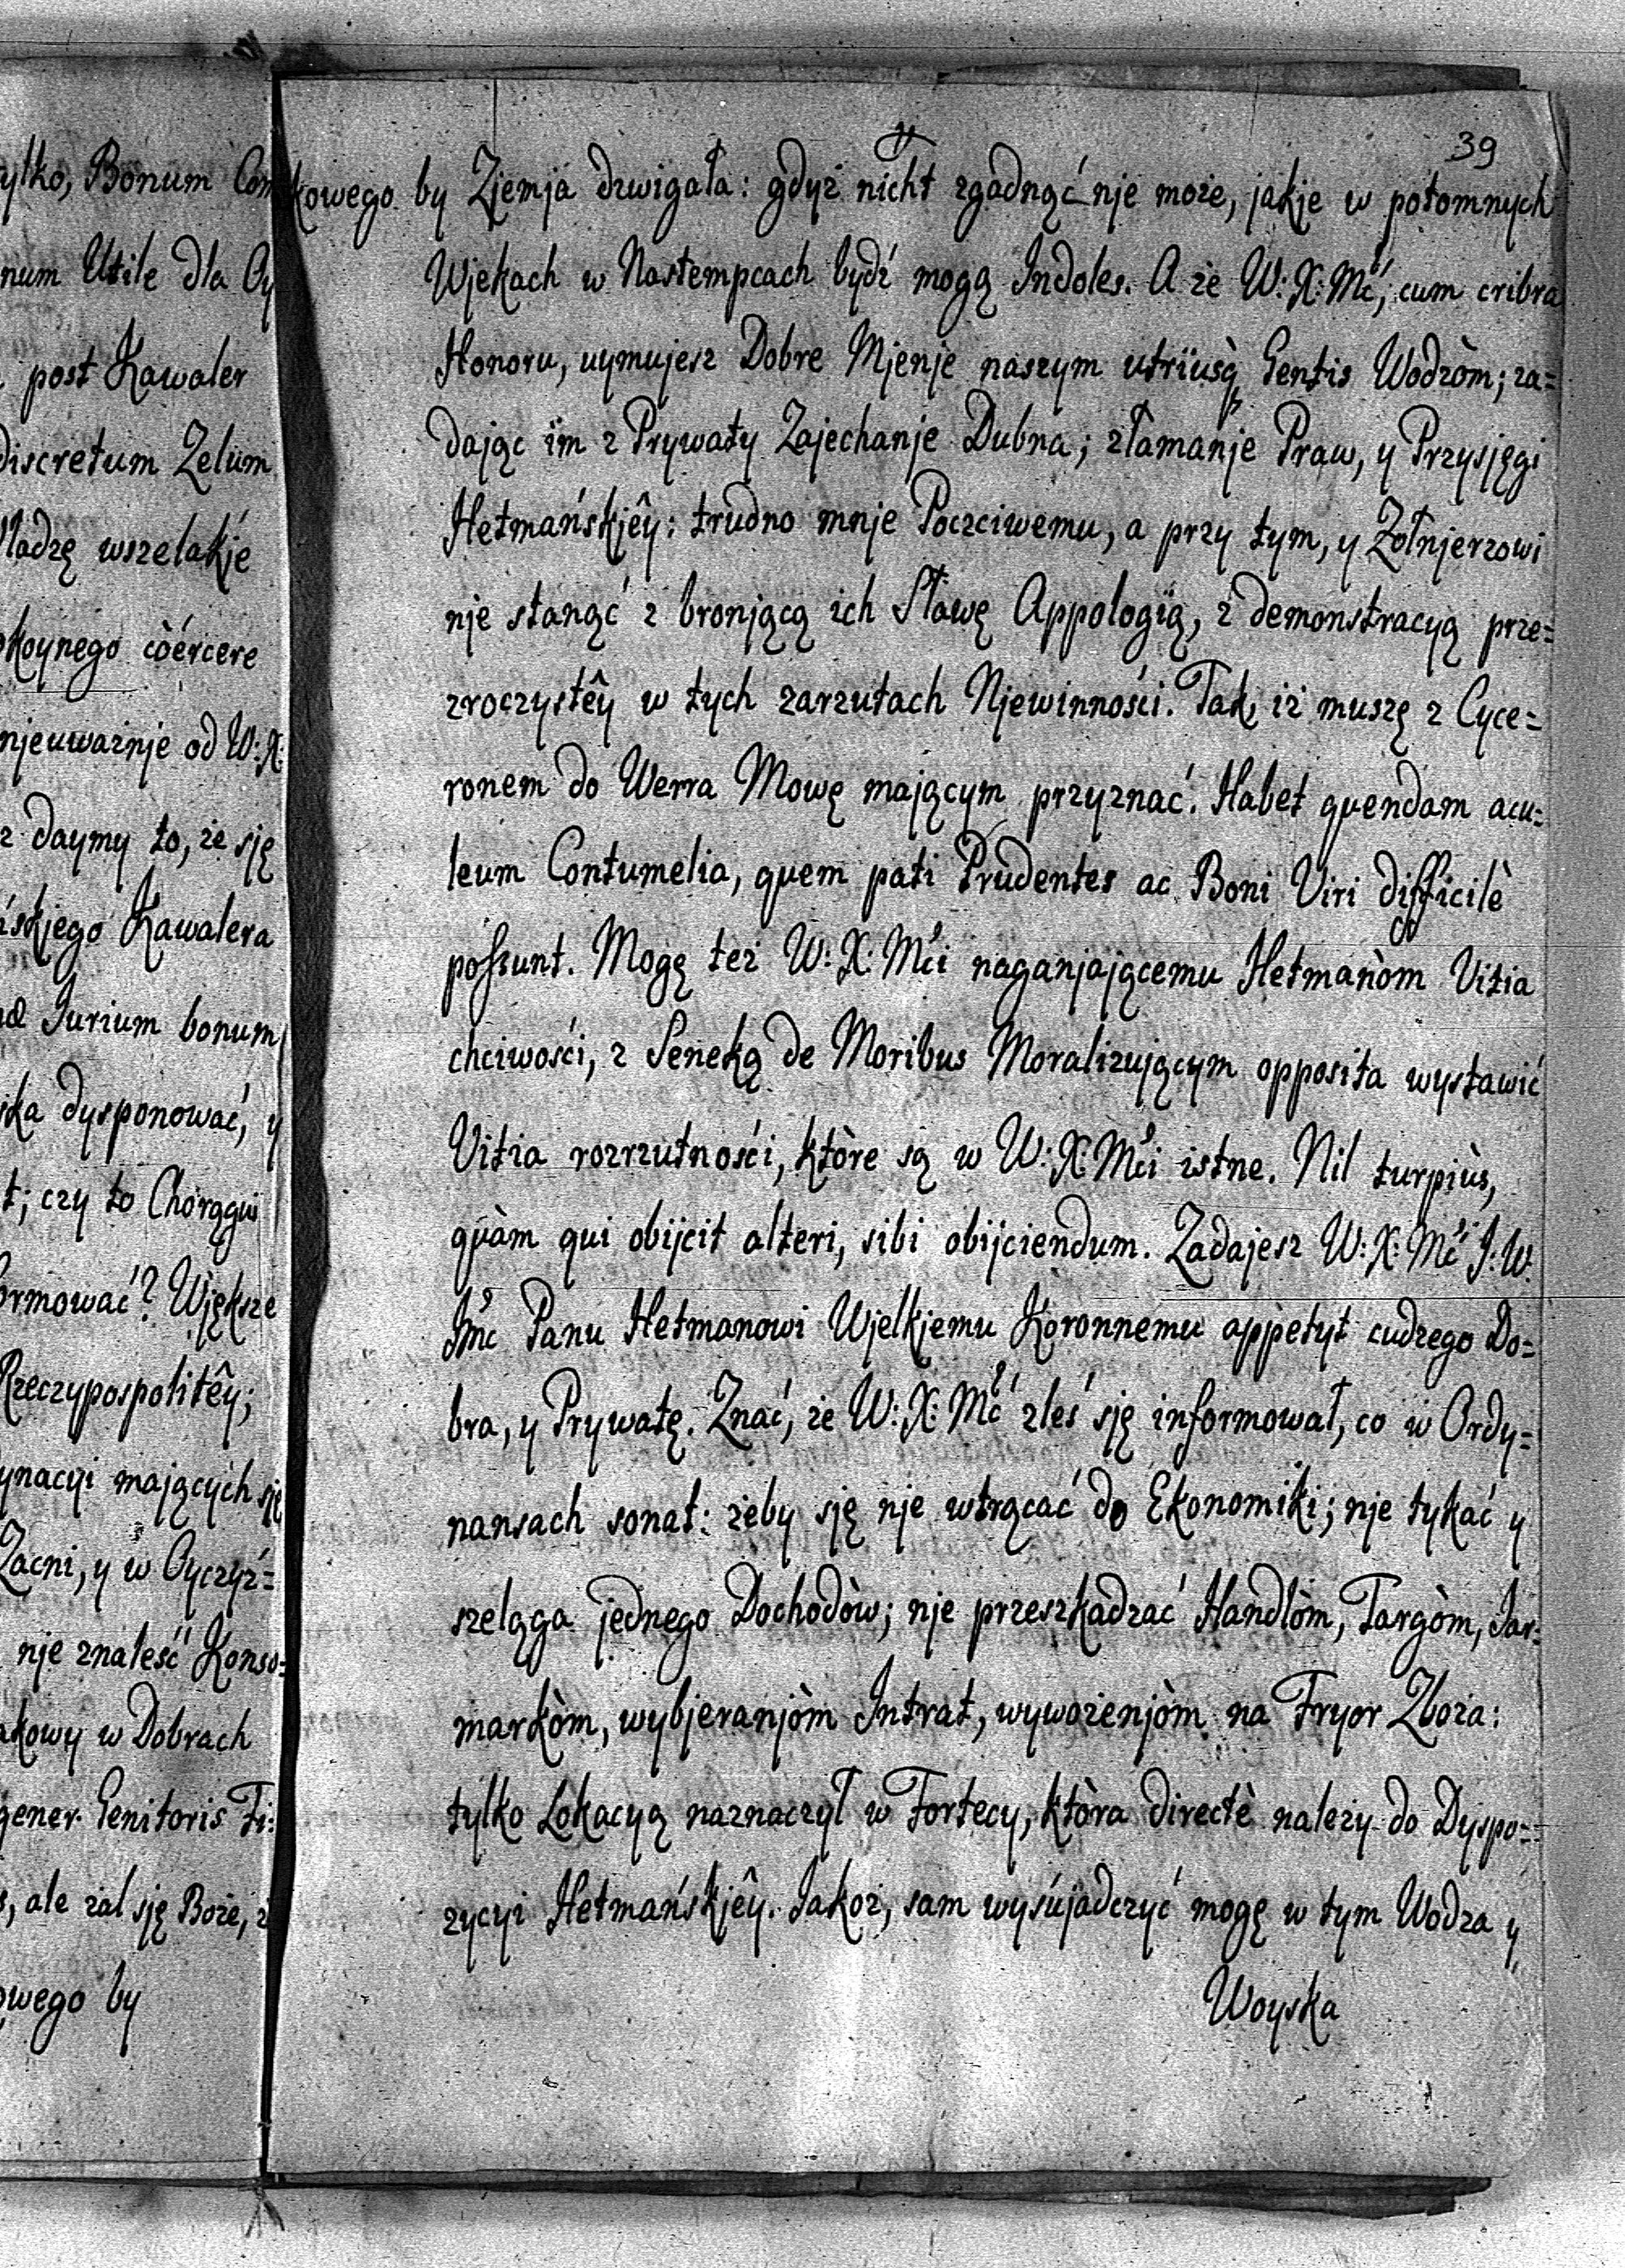 39
ylko, Bonum Com
num Utile dla Oy
post Kawaler
discretum Zelum
ładzę wszelakje
okoynego còércere
njeuwaznje od W: X:
z daymy to, że sję
skjego Kawalera
Jurium bonum
ska dysponować, y
t; czy to Chorągwi
ormować? Wjększe
Rzeczypospolitêy;
ynacyi mających sję
Zacni, y w Oyczyż=
nje znaleść Konso=
akowy w Dobrach
gener. Genitoris Fi:
s, ale zal sję Boże, z
owego by
kowego by Zjemja dzwigała: gdyż nicht zgadnąć nje może, jakje w potomnych
Wjekach w Nastempcach bydź mogą Indoles. A że W: X: Mć, cum cribra
Honoru, uymujesz Dobre Mjenje naszym utriusq Gentis Wodzòm; za=
dając im z Prywaty Zajechanje Dubna; złamanje Praw, y Przysjęgi
Hetmańskjêy: trudno mnje Poczciwemu, a przy tym, y Żołnjerzowi
nje stanąć z bronjącą ich Sławę Appologią, z demonstracyą prze=
zroczystêy w tych zarzutach Njewinności. Tak, iż muszę z Cyce=
ronem do Werra Mowę mającym przyznać. Habet quendam acu=
leum Contumelia, quem pati Prudentes ac Boni Viri difficilè
possunt. Mogę też W: X: Mći naganjającemu Hetmanòm Vitia
chciwości, z Seneką de Moribus Moralizującym opposita wystawić
Vitia rozrzutności, ktòre są w W: X: Mći istne. Nil turpiùs,
quàm qui obijcit alteri, sibi obijciendum. Zadajesz W: X: Mć J: W.
Jmć Panu Hetmanowi Wjelkjemu Koronnemu appetyt cudzego Do=
bra, y Prywatę. Znać, że W: X: Mć zleś sję informował, co w Ordy=
nansach sonat: żeby sję nje wtrącać do Ekonomiki; nje tykać y
szeląga jednego Dochodòw; nje przeszkadzać Handlòm, Targòm, Jar=
markòm, wybjeranjòm Intrat, wywożenjòm na Fryor Zboża:
tylko Lokacyą naznaczył w Fortecy, ktòra directè należy do Dyspo=
zycyi Hetmańskjêy. Jakoż, sam wyświadczyć mogę w tym Wodza y
Woyska